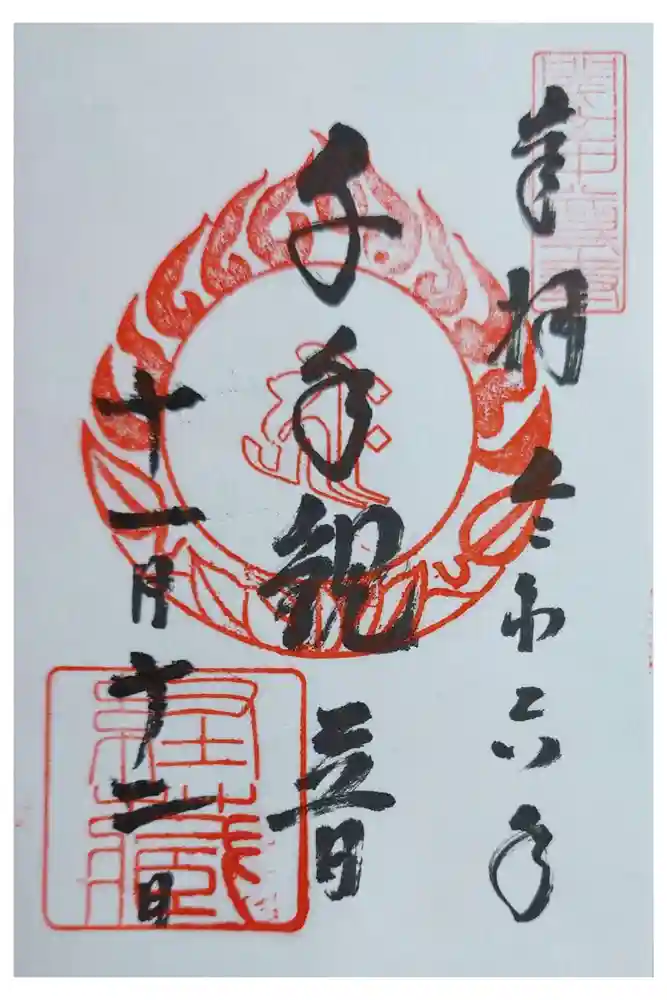 奉拝 令和六年
千手観音
十一月十二日
經藏